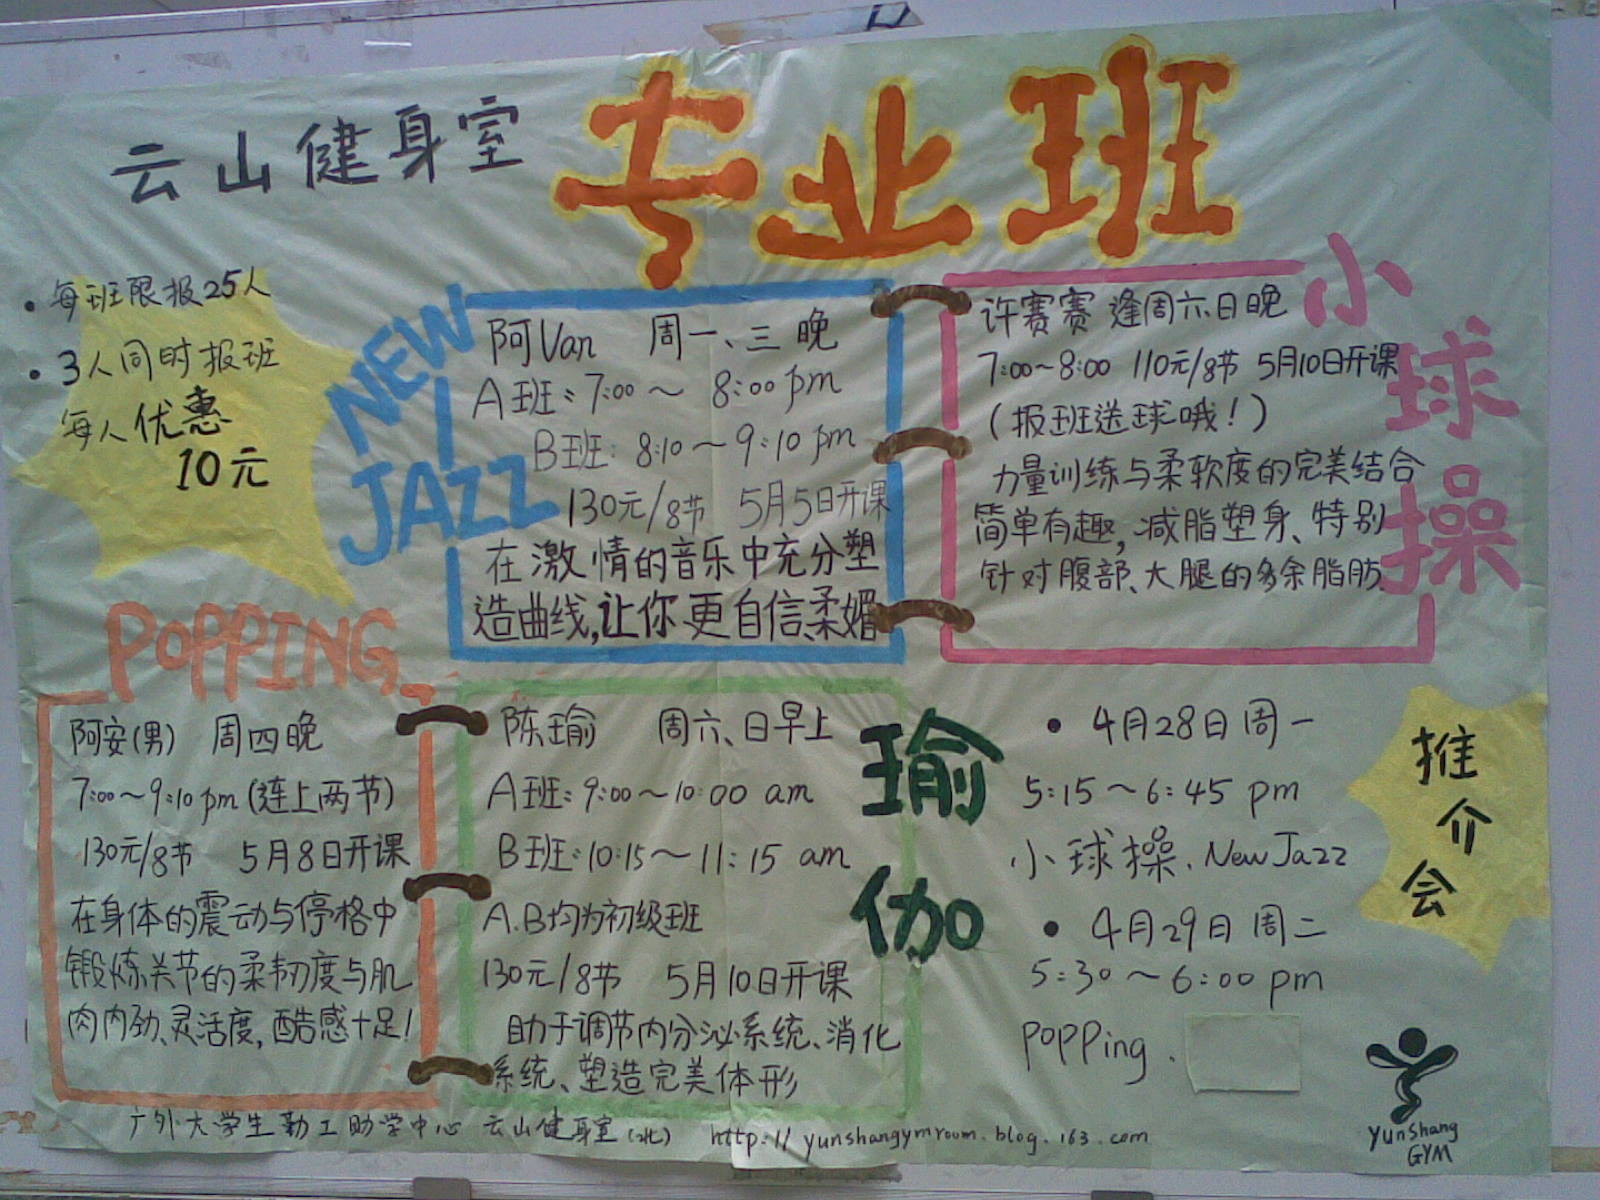 云山健身室
专业班
• 每班限报25人
• 3人同时报班
每人优惠
10元
NEW
JAZZ
阿Van 周一、三晚
A班: 7:00～8:00 pm
B班: 8:10～9:10 pm
130元/8节 5月5日开课
在激情的音乐中充分塑
造曲线,让你更自信、柔媚
小球操
许赛赛 逢周六、日晚
7:00～8:00 110元/8节 5月10日开课
(报班送球哦!)
力量训练与柔软度的完美结合
简单有趣,减脂塑身、特别
针对腹部、大腿的多余脂肪.
POPPING
阿安(男) 周四晚
7:00～9:10 pm (连上两节)
130元/8节 5月8日开课
在身体的震动与停格中
锻炼关节的柔韧度与肌
肉内劲、灵活度,酷感十足!
瑜伽
陈瑜 周六、日早上
A班: 9:00～10:00 am
B班: 10:15～11:15 am
A.B均为初级班
130元/8节 5月10日开课
助于调节内分泌系统、消化
系统、塑造完美体形
推介会
• 4月28日 周一
5:15～6:45 pm
小球操、New Jazz
• 4月29日 周二
5:30～6:00 pm
POPPing、
YunShang
GYM
广外大学生勤工助学中心 云山健身室(北) http://yunshangymroom.blog.163.com